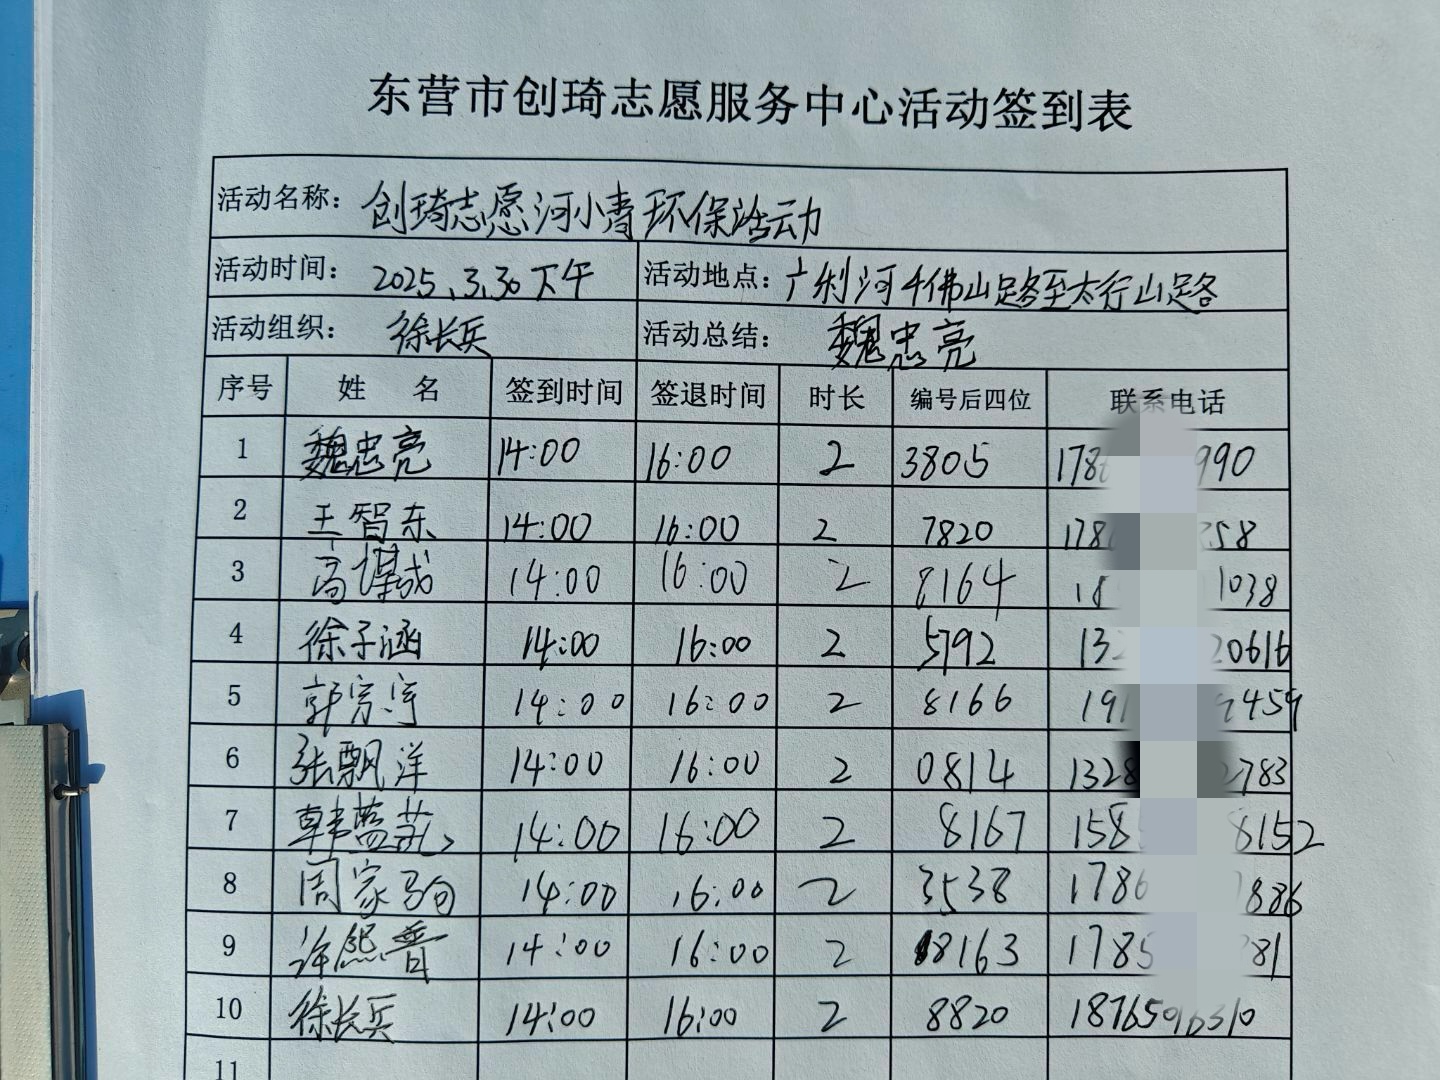 东营市创琦志愿服务中心活动签到表
活动名称： 创琦志愿河小青环保活动
活动时间： 2025.3.30下午 活动地点： 广利河千佛山路至太行山路
活动组织： 徐长兵 活动总结： 魏忠亮
序号 姓 名 签到时间 签退时间 时长 编号后四位 联系电话
1 魏忠亮 14:00 16:00 2 3805 178 990
2 王智东 14:00 16:00 2 7820 178 58
3 高谋成 14:00 16:00 2 8164 18 1038
4 徐子涵 14:00 16:00 2 5792 132 20616
5 郭宗宇 14:00 16:00 2 8166 191 459
6 张飘洋 14:00 16:00 2 0814 1328 2783
7 14:00 16:00 2 8167 158 8152
8 周家驹 14:00 16:00 2 3538 1786 1886
9 许熙晋 14:00 16:00 2 8163 1785 281
10 徐长兵 14:00 16:00 2 8820
11